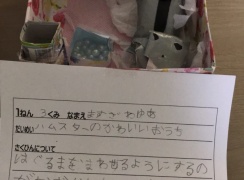 1ねん 3くみ なまえ
だいめい ハムスターのかわいいおうち
さくひんについて
はぐるまをまわせるようにするの